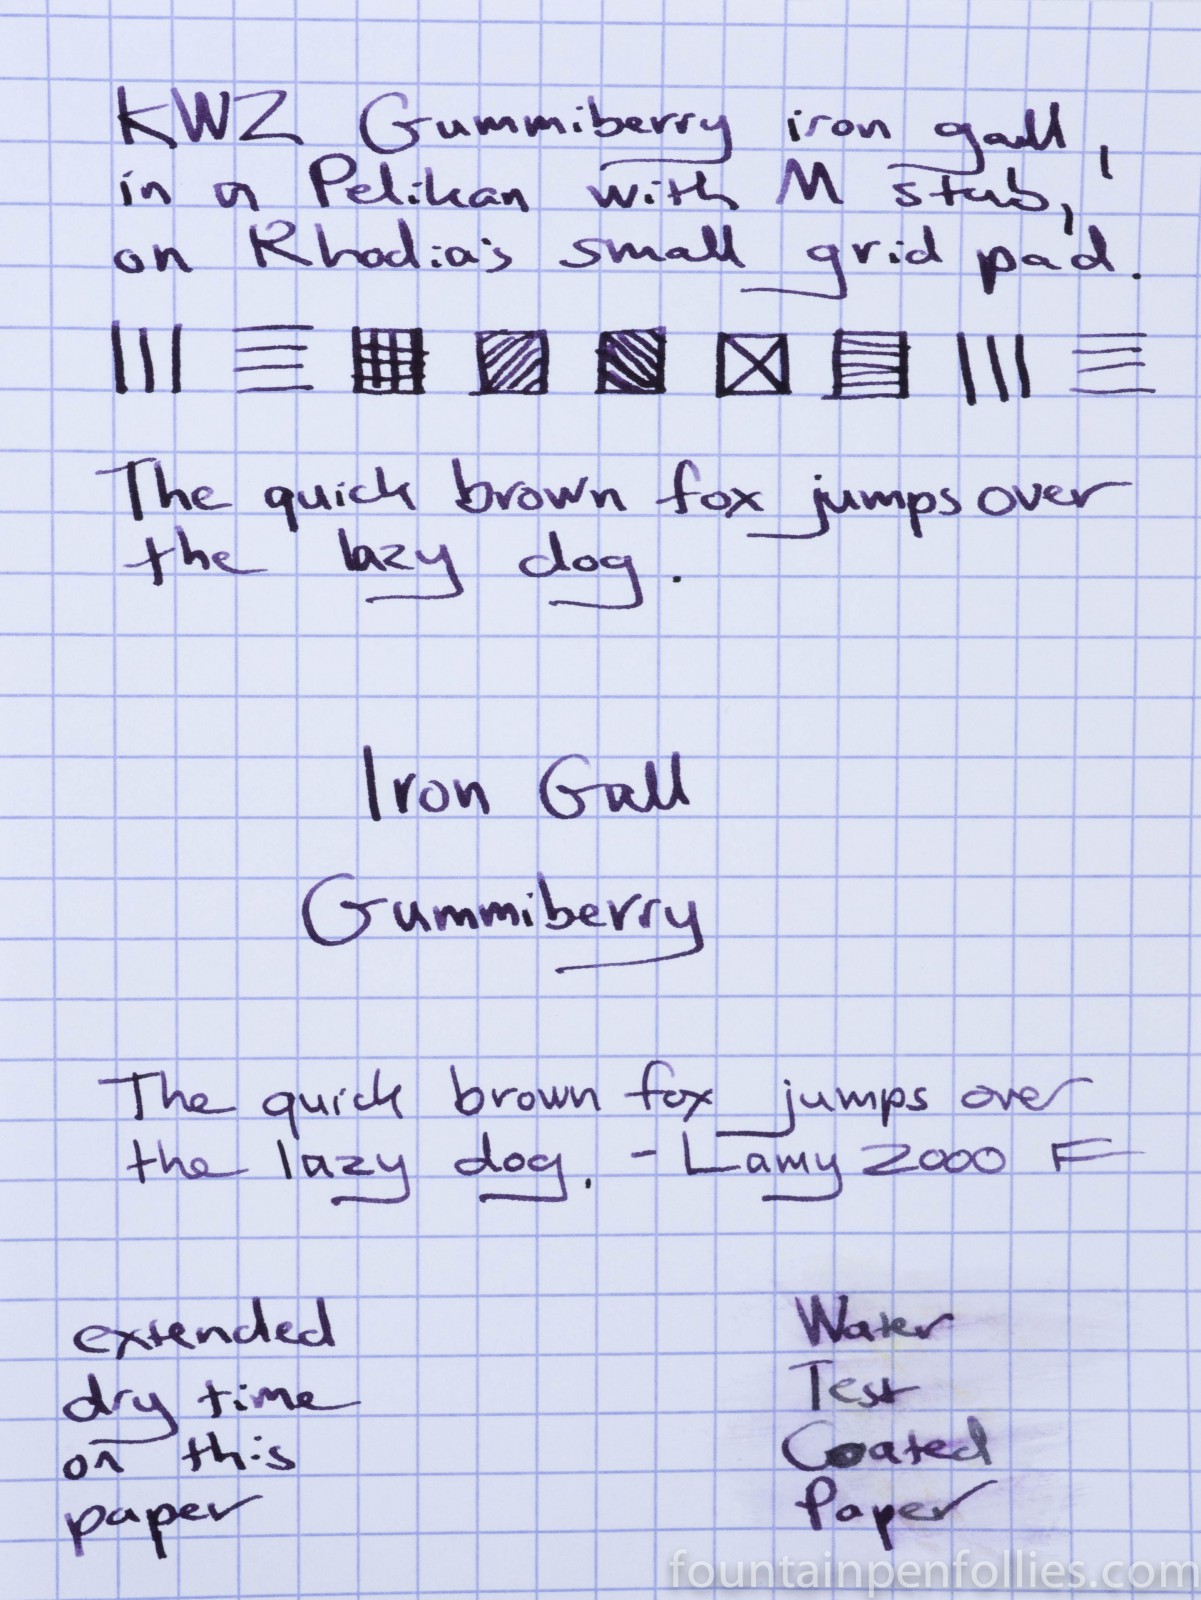 KWZ Gummiberry iron gall,
in a Pelikan with M stub,
on Rhodia's small grid pad.
The quick brown fox jumps over
the lazy dog.
Iron Gall
Gummiberry
The quick brown fox jumps over
the lazy dog. - Lamy 2000 F
extended
dry time
on this
paper
Water
Test
Coated
Paper
fountainpenfollies.com